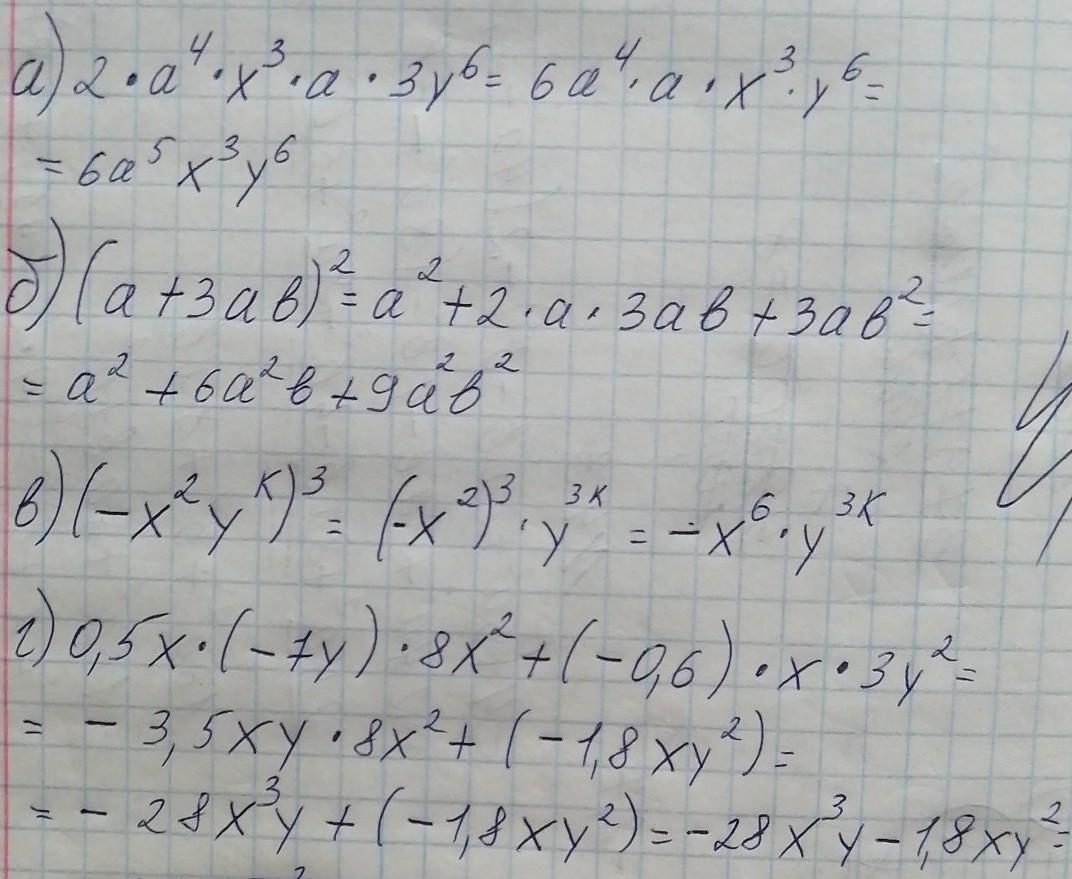 а) 2·a⁴·x³·a·3y⁶= 6a⁴·a·x³·y⁶=
=6a⁵x³y⁶
б) (a+3ab)²=a²+2·a·3ab+3ab²=
=a²+6a²b+9a²b²
в) (-x²yᴷ)³ = (-x²)³·y³ᴷ = -x⁶·y³ᴷ
г) 0,5x·(-7y)·8x²+(-0,6)·x·3y²=
= - 3,5xy·8x²+(-1,8xy²)=
= - 28x³y+(-1,8xy²)=-28x³y-1,8xy²=